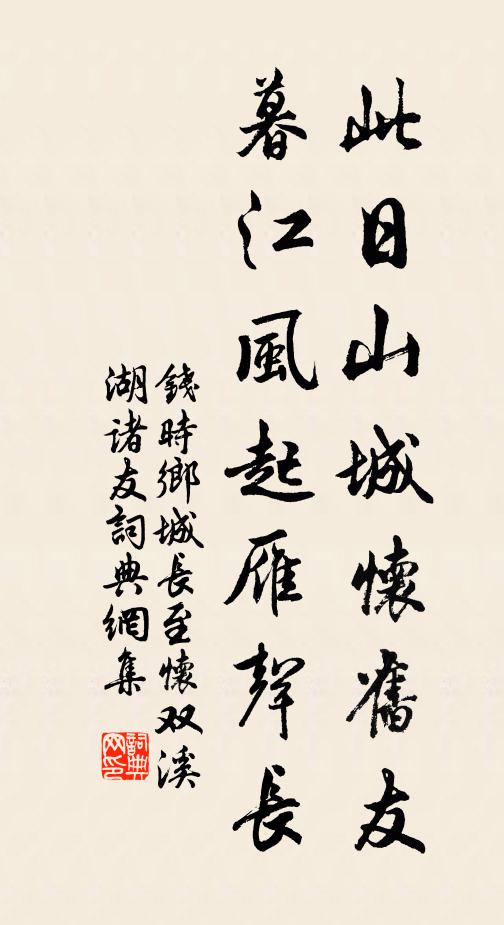 此日山城懷舊友
暮江風起雁聲長
錢時鄉城長至懷双溪
湖诸友詞典網集
詞典網印